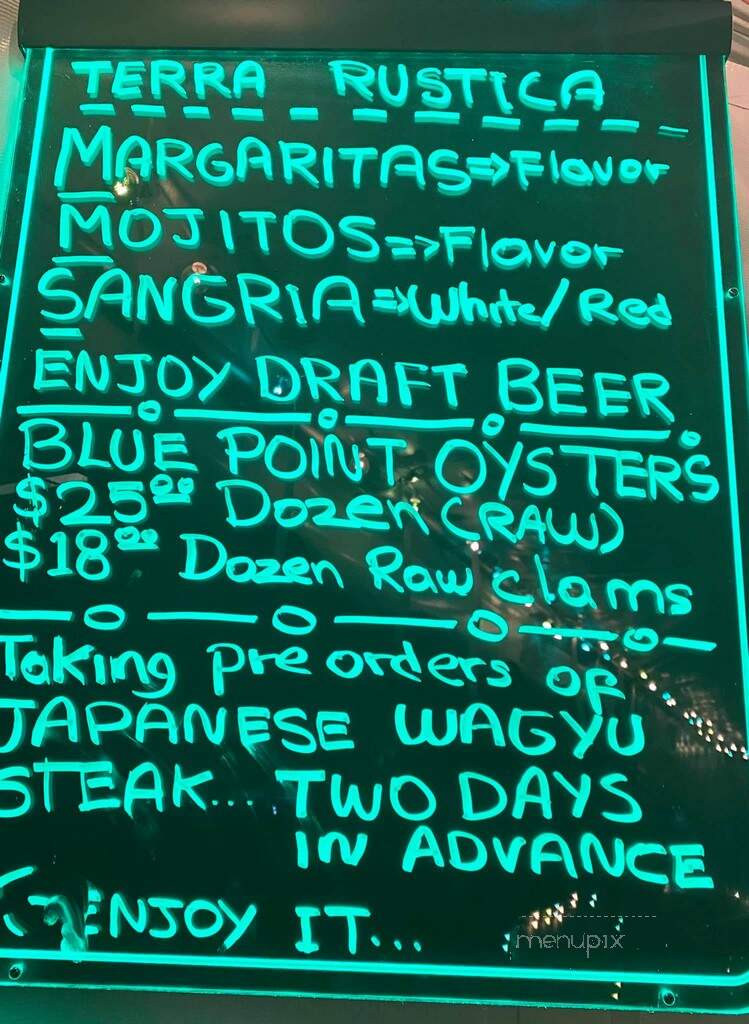 TERRA RUSTICA
MARGARITAS=>Flavor
MOJITOS=>Flavor
SANGRIA=>White/Red
ENJOY DRAFT BEER
BLUE POINT OYSTERS
$25⁰⁰ Dozen (RAW)
$18⁰⁰ Dozen Raw clams
Taking pre orders of
JAPANESE WAGYU
STEAK... TWO DAYS
IN ADVANCE
ENJOY IT...
menupix